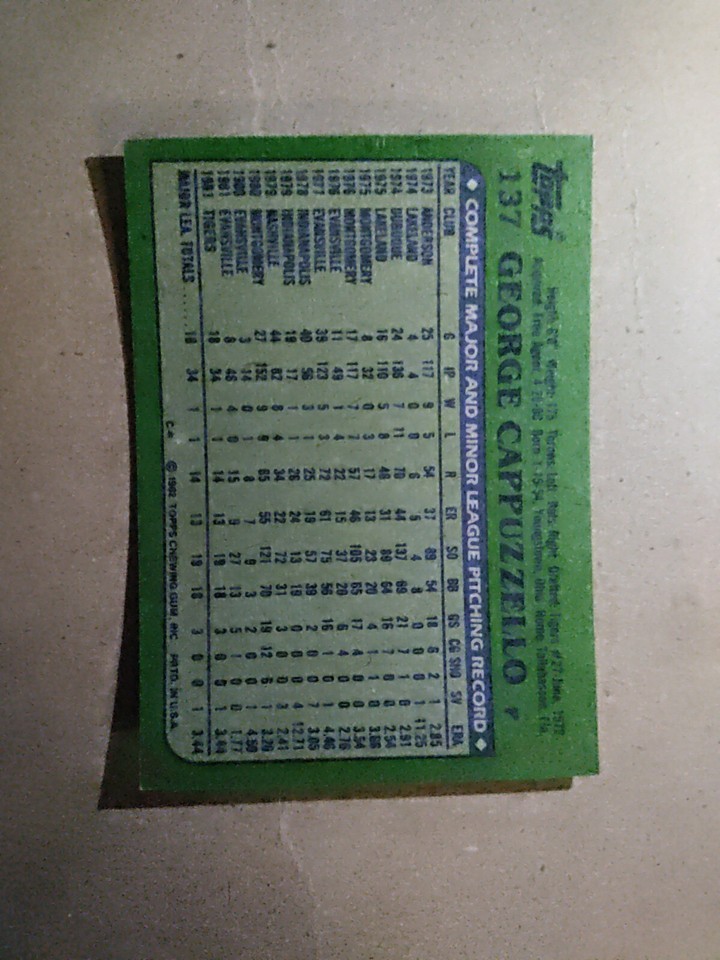 TOPPS
137 GEORGE CAPPUZZELLO
Height: Weight: 175 Throws: Left Bats: Right Drafted: Tigers #27-June, 1972
Acquired: Free Agent, Born: Youngstown, Ohio Home: Tallahassee, Fla.
COMPLETE MAJOR AND MINOR LEAGUE PITCHING RECORD
YEAR CLUB G IP W L R ER SO BB GS CG SHO SV ERA
1973 ANDERSON 25 117 9 5 54 37 89 54 18 6 2 1 2.85
1974 LAKELAND 4 4 0 0 6 5 4 8 0 0 0 1 11.25
1974 DUBUQUE 24 136 7 11 70 44 137 69 21 7 1 0 2.91
1975 LAKELAND 16 110 5 8 46 31 89 64 16 7 1 0 2.54
1975 MONTGOMERY 8 32 0 3 17 13 23 20 4 0 1 0 3.66
1976 MONTGOMERY 17 117 7 7 57 46 105 65 17 4 1 0 3.54
1976 EVANSVILLE 11 49 1 4 22 15 37 20 6 0 0 0 2.76
1977 EVANSVILLE 39 123 5 7 72 61 75 56 16 1 0 1 4.46
1978 INDIANAPOLIS 40 56 3 1 25 19 57 39 2 0 0 7 3.05
1979 INDIANAPOLIS 19 17 1 1 26 24 13 19 0 0 0 4 12.71
1979 NASHVILLE 44 82 8 4 34 22 72 31 3 2 1 2.41
1980 MONTGOMERY 27 152 9 9 65 55 121 70 19 12 6 1
1980 EVANSVILLE 3 14 0 1 8 7 3 9 2 0 0 0 4.50
1981 EVANSVILLE 8 46 4 0 15 9 27 13 5 1 0 0 1.77
1981 TIGERS 18 34 1 1 14 13 19 18 3 0 0 1 3.44
MAJOR LEA. TOTALS ..... 18 34 1 1 14 13 19 18 3 0 0 1 3.44
© 1982 TOPPS CHEWING GUM, INC. PRTD. IN U.S.A.